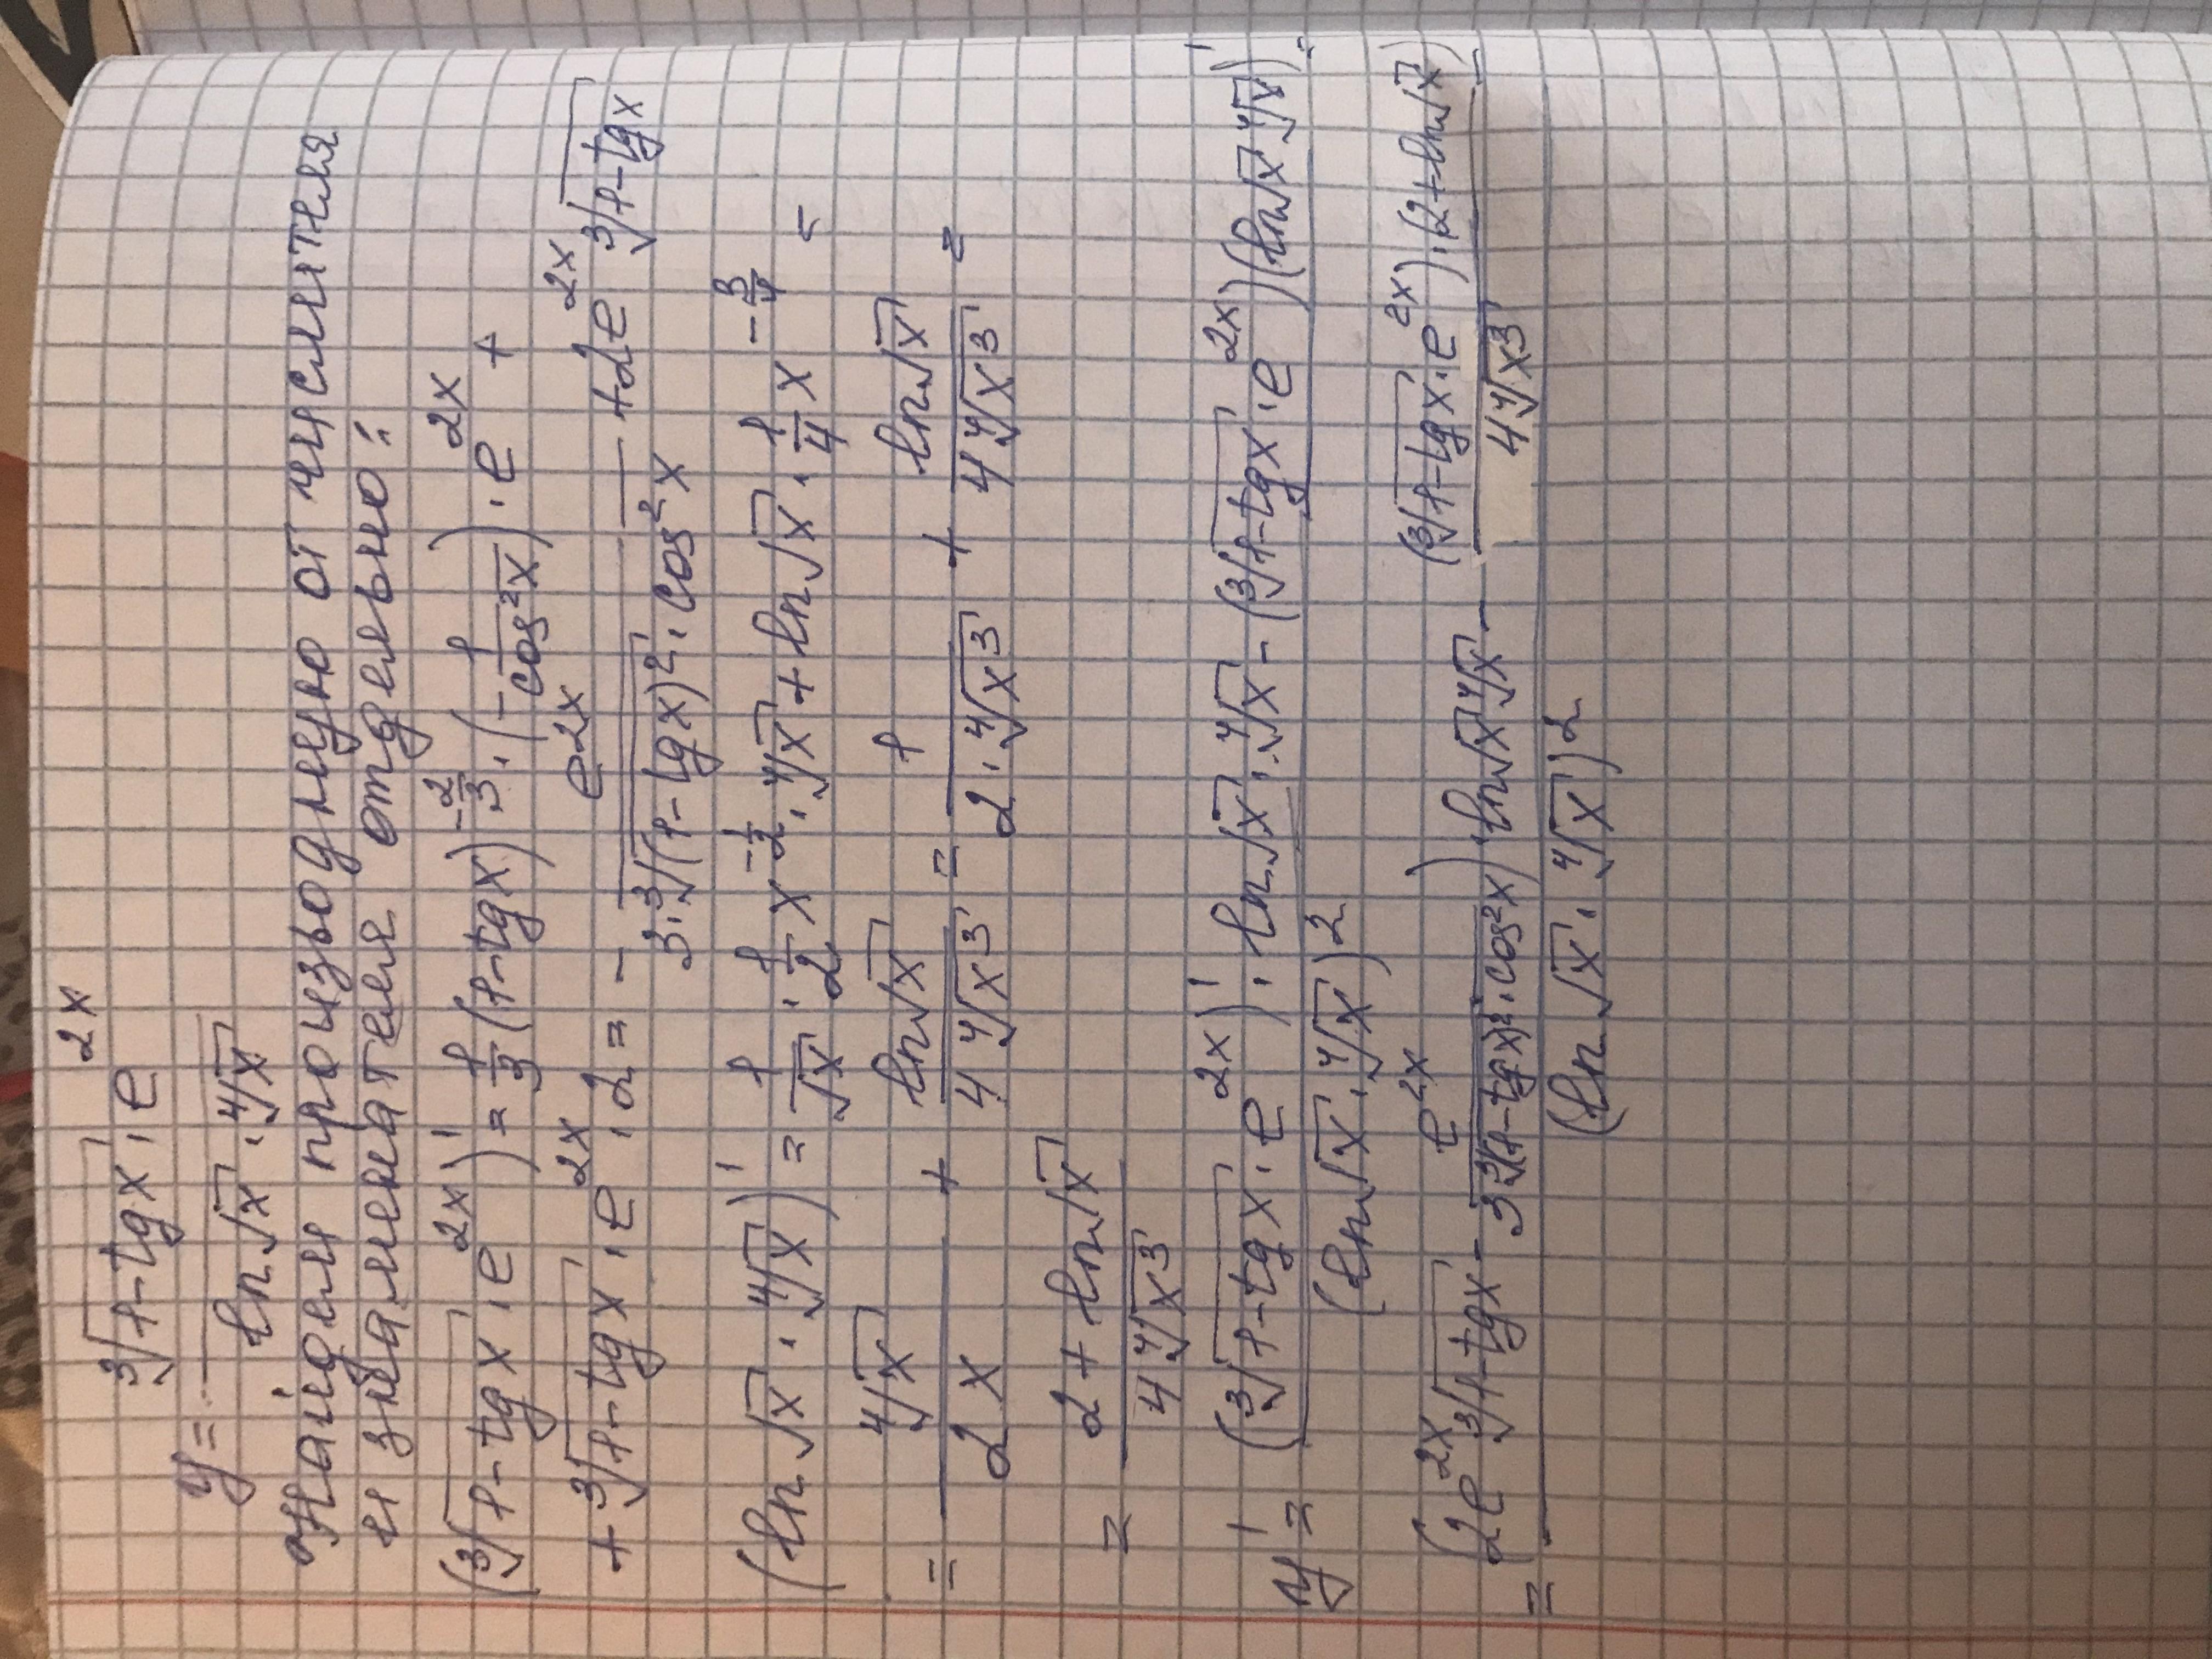 y = (∛(1-tgx) · e^(2x)) / (ln√x · ∜x)
Найдем производную от числителя
и знаменателя отдельно:
(∛(1-tgx) · e^(2x))' = 1/3 (1-tgx)^(-2/3) · (-1/cos²x) · e^(2x) +
+ ∛(1-tgx) · e^(2x) · 2 = - e^(2x) / (3·∛((1-tgx)²) · cos²x) + 2e^(2x) ∛(1-tgx)
(ln√x · ∜x)' = 1/√x · 1/2 x^(-1/2) · ∜x + ln√x · 1/4 x^(-3/4) =
= ∜x / 2x + ln√x / (4∜(x³)) = 1 / (2·∜(x³)) + ln√x / (4∜(x³)) =
= (2+ln√x) / (4∜(x³))
y' = ((∛(1-tgx) · e^(2x))' · ln√x · ∜x - (∛(1-tgx) · e^(2x))(ln√x ∜x)') / (ln√x · ∜x)² =
= ((2e^(2x) ∛(1-tgx) - e^(2x) / (3∛((1-tgx)²) · cos²x)) · ln√x ∜x - (∛(1-tgx) · e^(2x)) · (2+ln√x) / (4∜(x³))) / (ln√x · ∜x)² =